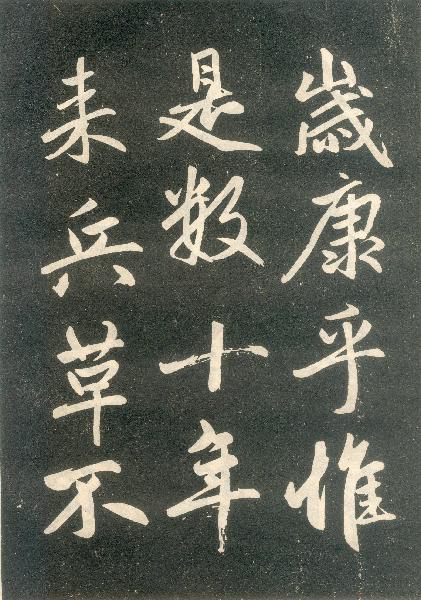 歲康乎惟
是数十年
来兵草不